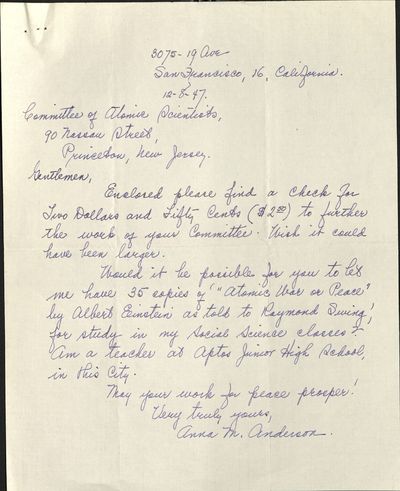 3075-19 Ave
San Francisco, 16, California.
12-8-47.
Committee of Atomic Scientists,
90 Nassau Street,
Princeton, New Jersey.
Gentlemen,
Enclosed please find a check for
Two Dollars and Fifty Cents ($2.50) to further
the work of your Committee. Wish it could
have been larger.
Would it be possible for you to let
me have 35 copies of "Atomic War or Peace"
by Albert Einstein as told to Raymond Swing,
for study in my Social Science classes?
Am a teacher at Aptos Junior High School,
in this City.
May your work for peace prosper!
Very truly yours,
Anna M. Anderson.